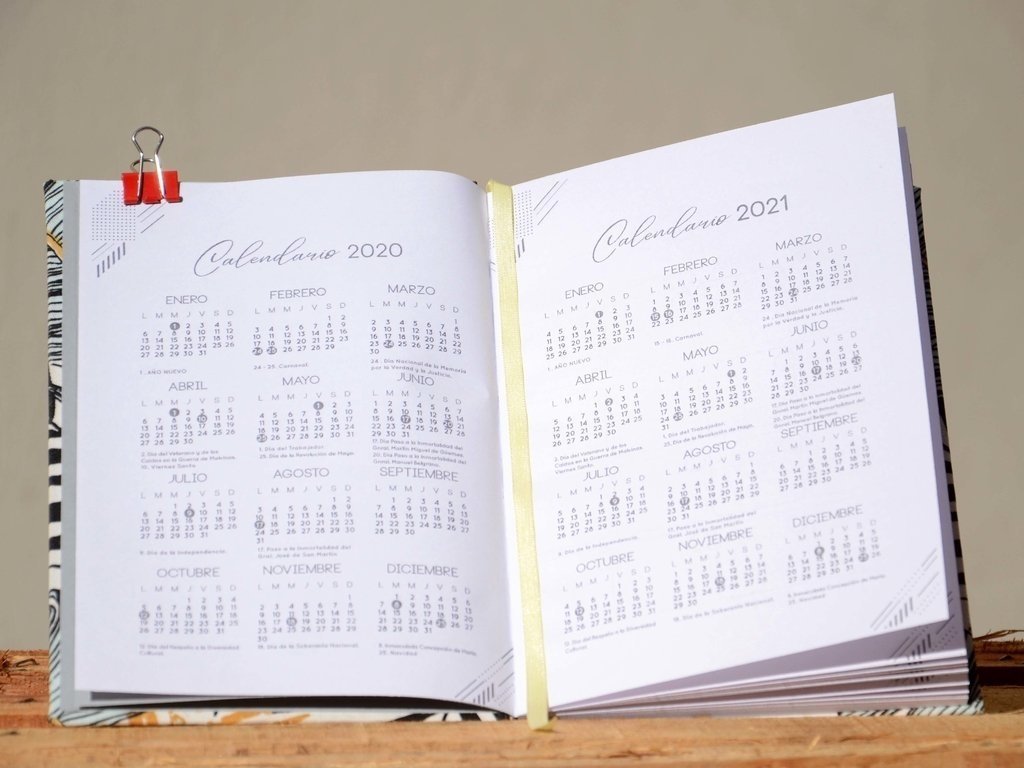 Calendario 2020
ENERO
L M M J V S D
1 2 3 4 5
6 7 8 9 10 11 12
13 14 15 16 17 18 19
20 21 22 23 24 25 26
27 28 29 30 31
1. AÑO NUEVO
FEBRERO
L M M J V S D
1 2
3 4 5 6 7 8 9
10 11 12 13 14 15 16
17 18 19 20 21 22 23
24 25 26 27 28 29
24 - 25. Carnaval.
MARZO
L M M J V S D
1
2 3 4 5 6 7 8
9 10 11 12 13 14 15
16 17 18 19 20 21 22
23 24 25 26 27 28 29
30 31
24. Día Nacional de la Memoria
por la Verdad y la Justicia.
ABRIL
L M M J V S D
1 2 3 4 5
6 7 8 9 10 11 12
13 14 15 16 17 18 19
20 21 22 23 24 25 26
27 28 29 30
2. Día del Veterano y de los
Caídos en la Guerra de Malvinas.
10. Viernes Santo.
MAYO
L M M J V S D
1 2 3
4 5 6 7 8 9 10
11 12 13 14 15 16 17
18 19 20 21 22 23 24
25 26 27 28 29 30 31
1. Día del Trabajador.
25. Día de la Revolución de Mayo.
JUNIO
L M M J V S D
1 2 3 4 5 6 7
8 9 10 11 12 13 14
15 16 17 18 19 20 21
22 23 24 25 26 27 28
29 30
17. Día Paso a la Inmortalidad del
Gral. Martín Miguel de Güemes.
20. Día Paso a la Inmortalidad del
Gral. Manuel Belgrano.
JULIO
L M M J V S D
1 2 3 4 5
6 7 8 9 10 11 12
13 14 15 16 17 18 19
20 21 22 23 24 25 26
27 28 29 30 31
9. Día de la Independencia.
AGOSTO
L M M J V S D
1 2
3 4 5 6 7 8 9
10 11 12 13 14 15 16
17 18 19 20 21 22 23
24 25 26 27 28 29 30
31
17. Paso a la Inmortalidad del
Gral. José de San Martín
SEPTIEMBRE
L M M J V S D
1 2 3 4 5 6
7 8 9 10 11 12 13
14 15 16 17 18 19 20
21 22 23 24 25 26 27
28 29 30
OCTUBRE
L M M J V S D
1 2 3 4
5 6 7 8 9 10 11
12 13 14 15 16 17 18
19 20 21 22 23 24 25
26 27 28 29 30 31
12. Día del Respeto a la Diversidad
Cultural.
NOVIEMBRE
L M M J V S D
1
2 3 4 5 6 7 8
9 10 11 12 13 14 15
16 17 18 19 20 21 22
23 24 25 26 27 28 29
30
18. Día de la Soberanía Nacional.
DICIEMBRE
L M M J V S D
1 2 3 4 5 6
7 8 9 10 11 12 13
14 15 16 17 18 19 20
21 22 23 24 25 26 27
28 29 30 31
8. Inmaculada Concepción de María.
25. Navidad
Calendario 2021
ENERO
L M M J V S D
1 2 3
4 5 6 7 8 9 10
11 12 13 14 15 16 17
18 19 20 21 22 23 24
25 26 27 28 29 30 31
1. AÑO NUEVO
FEBRERO
L M M J V S D
1 2 3 4 5 6 7
8 9 10 11 12 13 14
15 16 17 18 19 20 21
22 23 24 25 26 27 28
15 - 16. Carnaval.
MARZO
L M M J V S D
1 2 3 4 5 6 7
8 9 10 11 12 13 14
15 16 17 18 19 20 21
22 23 24 25 26 27 28
29 30 31
24. Día Nacional de la Memoria
por la Verdad y la Justicia.
ABRIL
L M M J V S D
1 2 3 4
5 6 7 8 9 10 11
12 13 14 15 16 17 18
19 20 21 22 23 24 25
26 27 28 29 30
2. Día del Veterano y de los
Caídos en la Guerra de Malvinas.
Viernes Santo.
MAYO
L M M J V S D
1 2
3 4 5 6 7 8 9
10 11 12 13 14 15 16
17 18 19 20 21 22 23
24 25 26 27 28 29 30
31
1. Día del Trabajador.
25. Día de la Revolución de Mayo.
JUNIO
L M M J V S D
1 2 3 4 5 6
7 8 9 10 11 12 13
14 15 16 17 18 19 20
21 22 23 24 25 26 27
28 29 30
17. Día Paso a la Inmortalidad del
Gral. Martín Miguel de Güemes.
20. Día Paso a la Inmortalidad del
Gral. Manuel Belgrano.
JULIO
L M M J V S D
1 2 3 4
5 6 7 8 9 10 11
12 13 14 15 16 17 18
19 20 21 22 23 24 25
26 27 28 29 30 31
9. Día de la Independencia.
AGOSTO
L M M J V S D
1
2 3 4 5 6 7 8
9 10 11 12 13 14 15
16 17 18 19 20 21 22
23 24 25 26 27 28 29
30 31
17. Paso a la Inmortalidad del
Gral. José de San Martín
SEPTIEMBRE
L M M J V S D
1 2 3 4 5
6 7 8 9 10 11 12
13 14 15 16 17 18 19
20 21 22 23 24 25 26
27 28 29 30
OCTUBRE
L M M J V S D
1 2 3
4 5 6 7 8 9 10
11 12 13 14 15 16 17
18 19 20 21 22 23 24
25 26 27 28 29 30 31
12. Día del Respeto a la Diversidad
Cultural.
NOVIEMBRE
L M M J V S D
1 2 3 4 5 6 7
8 9 10 11 12 13 14
15 16 17 18 19 20 21
22 23 24 25 26 27 28
29 30
18. Día de la Soberanía Nacional.
DICIEMBRE
L M M J V S D
1 2 3 4 5
6 7 8 9 10 11 12
13 14 15 16 17 18 19
20 21 22 23 24 25 26
27 28 29 30 31
8. Inmaculada Concepción de María.
25. Navidad